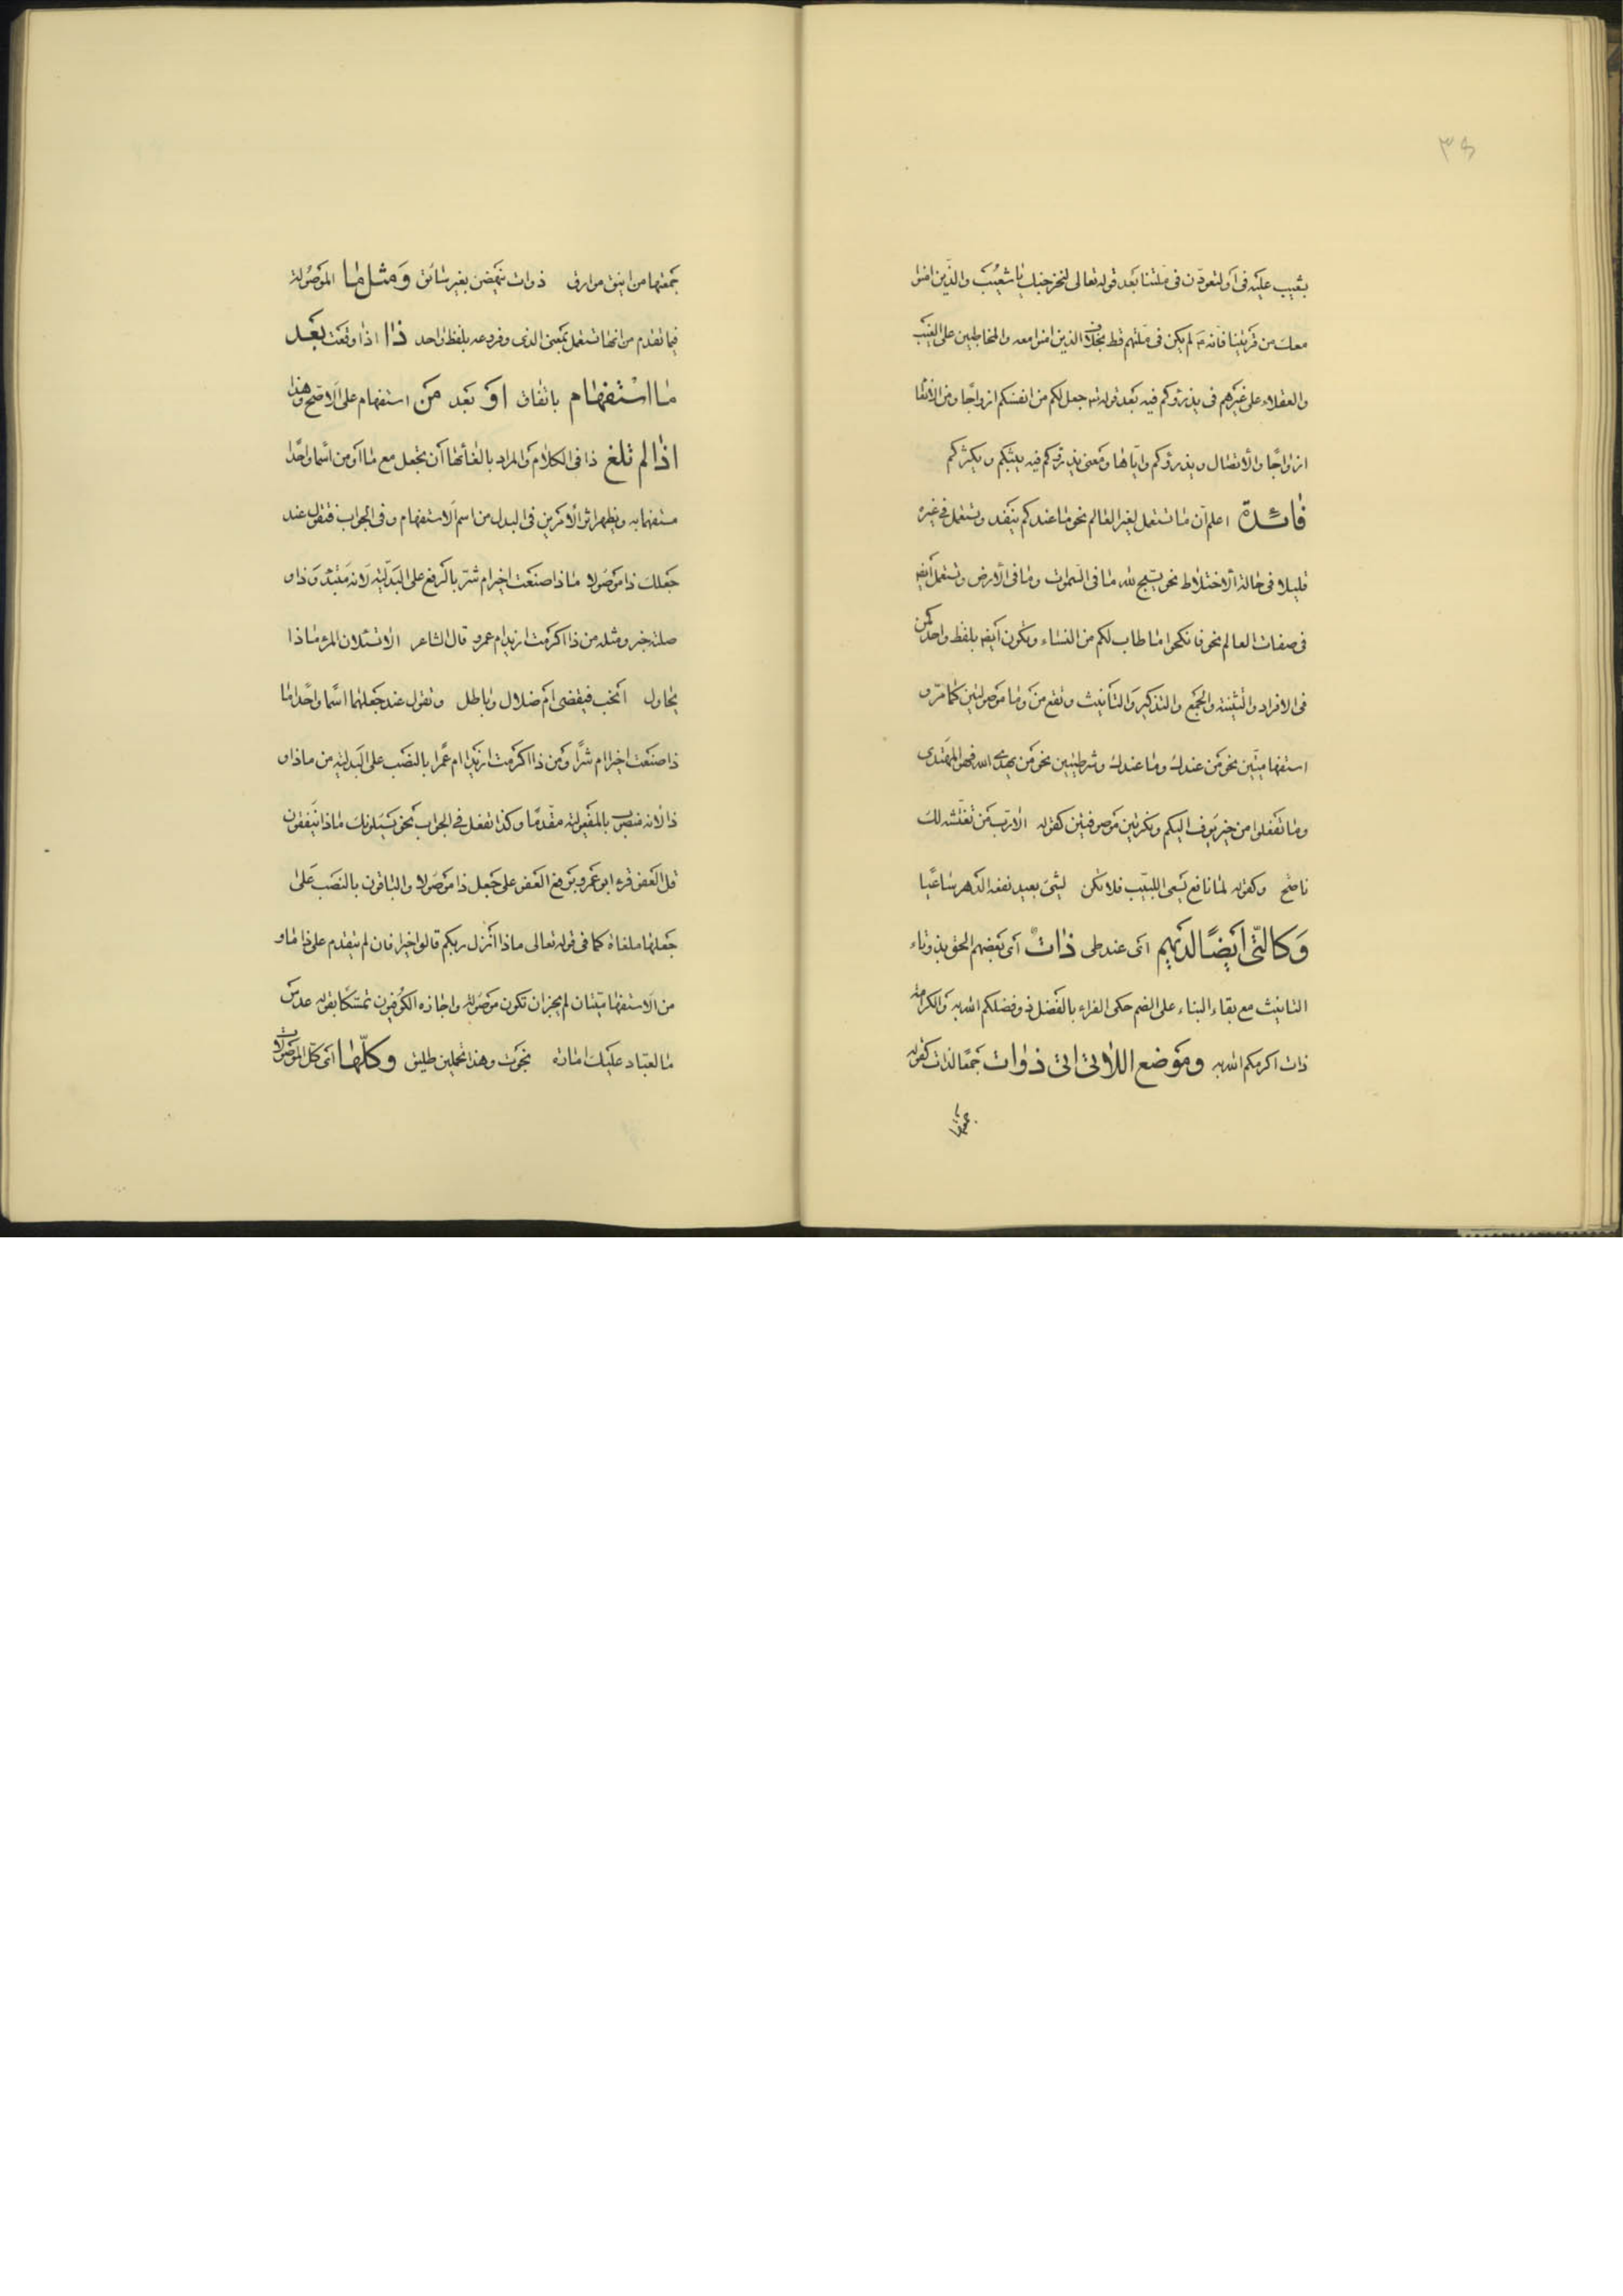 ٣٥
شعيب عليه في او لتعودن في ملتنا بعد قوله تعالى لنخرجنك يا شعيب والذين امنوا
معك من قريتنا فانه لم يكن في ملتهم قط بخلاف الذين امنوا معه والمخاطبين على الغيب
والعقلاء على غيرهم في يذرؤكم فيه بعد قوله تع جعل لكم من انفسكم ازواجًا ومن الانعام
ازواجًا والانصال ويذرؤكم واياها ومعنى يذرؤكم فيه يبثكم ويكثركم
فائدة اعلم ان ما تستعمل لغير العالم نحو ما عندكم ينفد وتستعمل في غيره
قليلا في حالة الاختلاط نحو يسبح لله ما في السموات وما في الارض وتستعمل ايضا
في صفات العالم نحو فانكحوا ما طاب لكم من النساء ويكون ايضا بلفظ واحد كمن
في الافراد والتثنية والجمع والتذكير والتأنيث وتقع من وما موصولتين كما مر و
استفهاميتين نحو من عندك وما عندك وشرطيتين نحو من يهدي الله فهو المهتدى
وما تفعلوا من خير يوف اليكم ونكرتين موصوفتين كقوله الا رب من تغتشه لك
ناصح وكقوله لما نافع يسعى اللبيب فلا تكن لشئ بعيد نفعه الدهر ساعيًا
وكالتي ايضًا لديهم اى عند طى ذات اى بعضهم الحق بذو تاء
التانيث مع بقاء البناء على الضم حكى الفراء بالفضل ذو فضلكم الله به والكرامة
ذات اكرمكم الله به وموضع اللاتى اتى ذوات جمعًا لذات كقوله
جمعتها من اينق موارق ذوات ينهضن بغير سائق ومثل ما الموصولة
فيما تقدم من انها تستعمل بمعنى الذى وفروعه بلفظ واحد ذا اذا وقعت بعد
ما استفهام باتفاق او بعد من استفهام على الاصح وهذا
اذا لم تلغ ذا في الكلام والمراد بالغائها ان تجعل مع ما او من اسما واحدًا
مستفهما به ويظهر اثر الامرين في البدل من اسم الاستفهام وفي الجواب فتقول عند
جعلك ذا موصولا ما ذا صنعت اخير ام شر بالرفع على البدلية لانه مبتدء وذا و
صلته خبر ومثله من ذا اكرمت ازيد ام عمرو قال الشاعر الا تسئلان المرء ما ذا
يحاول انحب فيقضى ام ضلال وباطل وتقول عند جعلهما اسمًا واحدًا ما
ذا صنعت اخيرا ام شرًا ومن ذا اكرمت ازيدا ام عمرا بالنصب على البدلية من ماذا و
ذا لانه منصوب بالمفعولية مقدمًا وكذا تفعل في الجواب نحو يسئلونك ماذا ينفقون
قل العفو قرء ابو عمرو برفع العفو على جعل ذا موصولا والباقون بالنصب على
جعلها ملغاة كما في قوله تعالى ماذا انزل ربكم قالوا خيرا فان لم يتقدم على ذا ما و
من الاستفهاميتان لم يجز ان تكون موصولة واجازه الكوفيون تمسكا بقوله عدس
ما لعباد عليك امارة نجوت وهذا تحملين طليق وكلها اى كل الموصولات